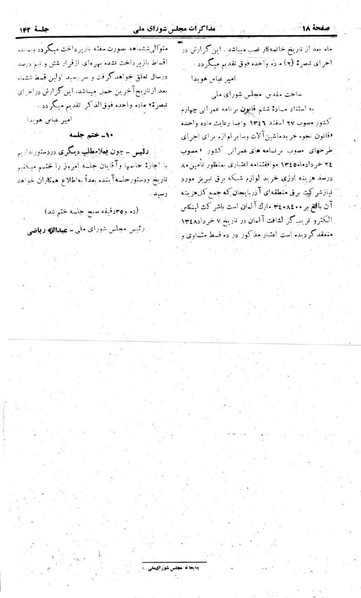 صفحهٔ ۱۸
مذاکرات مجلس شورای ملی
جلسهٔ ۱۴۲
ماه بعد از تاریخ خاتمه کار نصب میباشد . این گزارش در
اجرای تبصره (۲) ماده واحده فوق تقدیم میگردد .
امیر عباس هویدا
ساحت مقدس مجلس شورای ملی
به استناد مادهٔ ششم قانون برنامه عمرانی چهارم
کشور مصوب ۲۷ اسفند ۱۳۴۶ و با رعایت ماده واحده
«قانون نحوه خرید ماشین آلات و سایر لوازم برای اجرای
طرحهای مصوب برنامه های عمرانی کشور» مصوب
۲۴ خرداد ماه ۱۳۴۵ موافقتنامه اعتباری بمنظور تأمین ۸۰
درصد هزینه ارزی خرید لوازم شبکه برق تبریز مورد
نیاز شرکت برق منطقه ای آذربایجان که جمع کل هزینه
آن بالغ بر ۳۴۰۸۴۰۰ مارک آلمان است با شرکت
الکترو آلمان در تاریخ ۷ خرداد ۱۳۴۸
منعقد گردیده است اعتبار مذکور در ده قسط متساوی و
متوالی ششماهه بصورت سفته بازپرداخت میگردد و به
اقساط بازپرداخت نشده بهره ای از قرار شش و نیم درصد
در سال تعلق خواهد گرفت و سررسید اولین قسط ششماه
بعد از تاریخ آخرین حمل میباشد . این گزارش در اجرای
تبصره ۲ ماده واحده فوق الذکر تقدیم میگردد .
امیر عباس هویدا
۱۰- ختم جلسه
رئیس - چون فعلا مطلب دیگری در دستور نداریم
با اجازهٔ خانمها و آقایان جلسه امروز را ختم میکنیم
تاریخ و دستور جلسه آینده بعداً به اطلاع همکاران خواهد
رسید
(ده و ۳۵ دقیقه صبح جلسه ختم شد)
رئیس مجلس شورای ملی - عبدالله ریاضی
چاپخانه مجلس شورای ملی